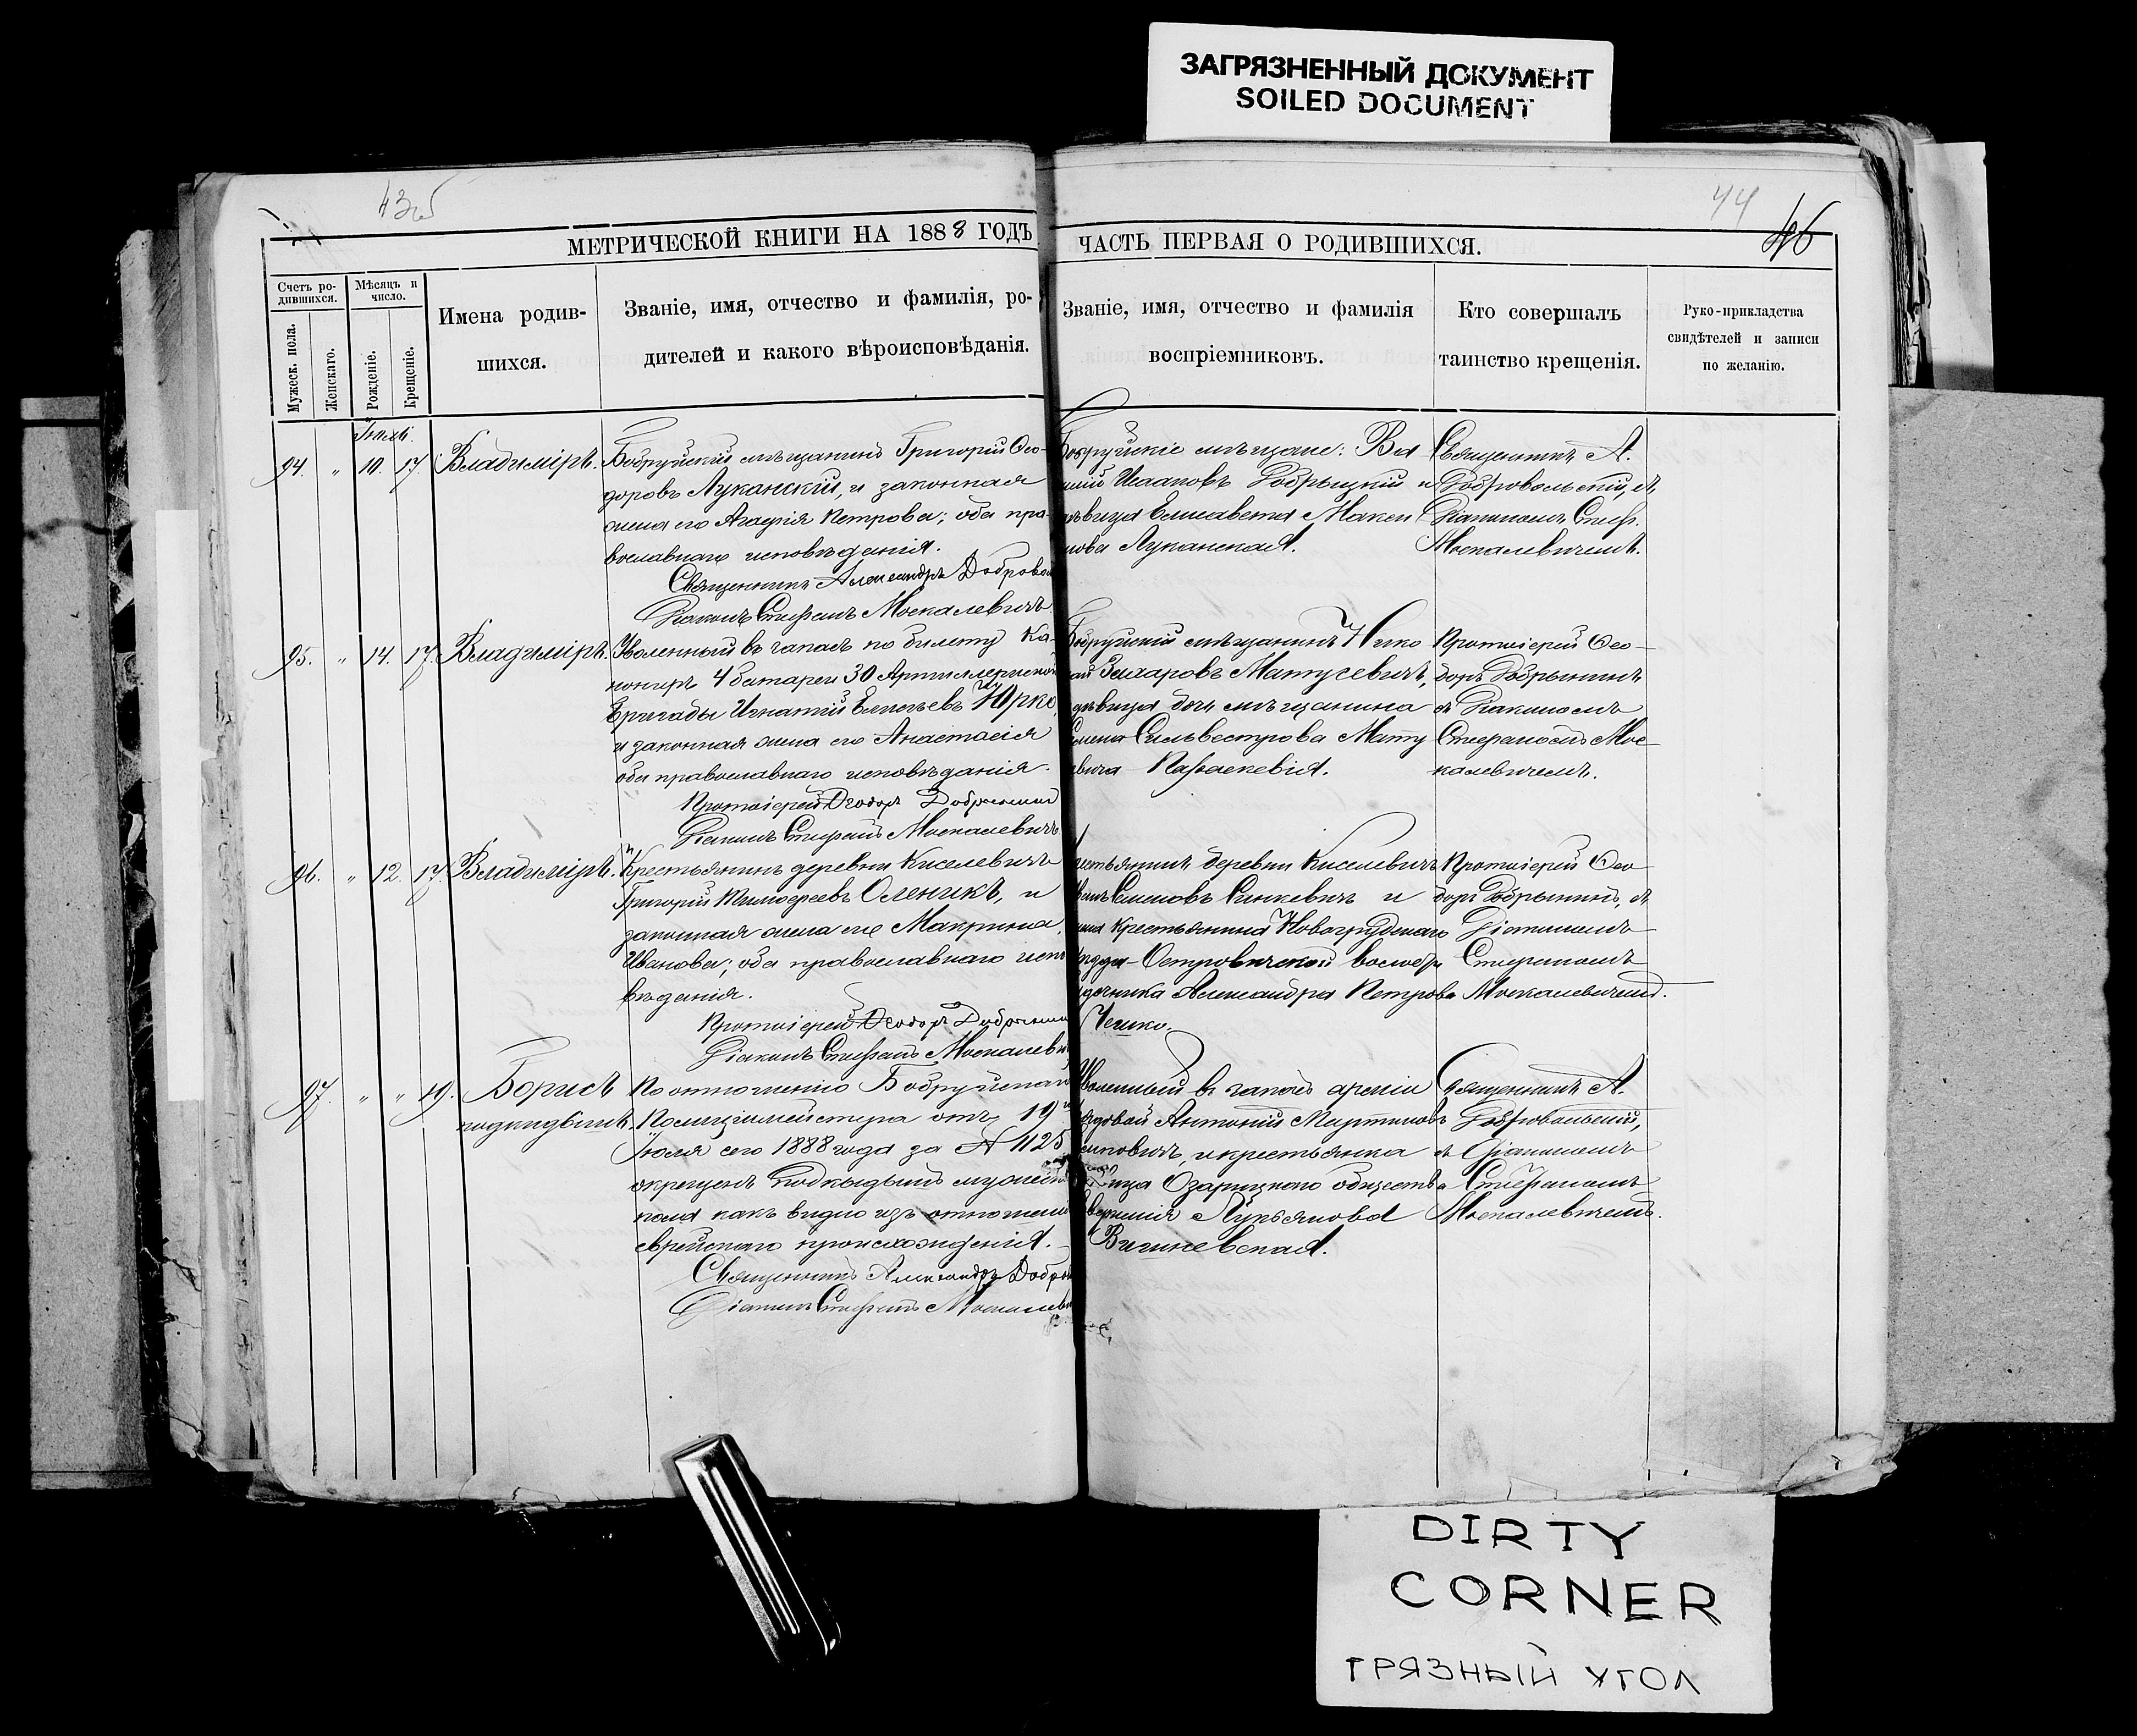 ЗАГРЯЗНЕННЫЙ ДОКУМЕНТ
SOILED DOCUMENT
44
46
МЕТРИЧЕСКОЙ КНИГИ НА 1888 ГОДЪ
ЧАСТЬ ПЕРВАЯ О РОДИВШИХСЯ.
Счетъ ро-
дившихся.
Мужеск. пола.
Женскаго.
Мѣсяцъ и
число.
Рожденіе.
Крещеніе.
Имена родив-
шихся.
Званіе, имя, отчество и фамилія, ро-
дителей и какого вѣроисповѣданія.
Званіе, имя, отчество и фамилія
воспріемниковъ.
Кто совершалъ
таинство крещенія.
Руко-прикладства
свидѣтелей и записи
по желанію.
94. " 10. 17. Владиміръ.
Бобруйскій мѣщанинъ Григорій Ѳео-
доровъ Луканскій, и законная
жена его Агафія Петрова; оба пра-
вославнаго исповѣданія.
Священникъ Александръ Доброво
Діаконъ Стефанъ Москалевичъ
Бобруйскіе мѣщане:
Добрыцкій и
Елисавета
Луканская.
Священникъ А.
Добровольскій, съ
Діакономъ Стеф.
Москалевичемъ.
95. " 14. 17. Владиміръ.
Уволенный въ запасъ по билету Ка-
нониръ 4 батареи 30 Артиллерійской
Бригады Игнатій Юрко,
и законная жена его Анастасія
оба православнаго исповѣданія.
Протоіерей Ѳеодоръ Добрынинъ
Діаконъ Стефанъ Москалевичъ
Бобруйскій мѣщанинъ Нико
лай Захаровъ Матусевичъ,
дѣвица дочь мѣщанина
Семена Сильвестрова Мату
севича Параскевія.
Протоіерей Ѳео-
доръ Добрынинъ
съ Діакономъ
Стефаномъ Мос-
калевичемъ.
96. " 12. 17. Владиміръ.
Крестьянинъ деревни Киселевичъ
Григорій Тимоѳеевъ Оленикъ, и
законная жена его Макрина
Иванова; оба православнаго испо
вѣданія.
Протоіерей Ѳеодоръ Добрынин
Діаконъ Стефанъ Москалеви
крестьянинъ деревни Киселевичъ
Семеновъ Синкевичъ и
жена крестьянина Новогрудскаго
уѣзда Островичской волости
Александра Петрова
Чешко.
Протоіерей Ѳео
доръ Добрынинъ, съ
Діакономъ
Стефаномъ
Москалевичемъ.
97. " " 19. Борисъ
подкидышъ.
По отношенію Бобруйскаго
Полиціймейстера отъ 19
Іюля сего 1888 года за № 1125
окрещенъ подкидышъ мужеск
пола какъ видно изъ отношенія
еврейскаго происхожденія.
Священникъ Александръ Добро
Діаконъ Стефанъ Москалеви
Уволенный въ запасъ арміи
рядовой Антоній Мартиновъ
и крестьянка
Озарицкаго общества
Лукьянова
Вишневская.
Священникъ А.
Добровольскій,
съ Діакономъ
Стефаномъ
Москалевичемъ.
DIRTY
CORNER
ГРЯЗНЫЙ УГОЛ